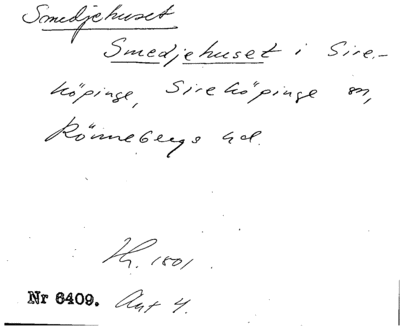 Smedjehuset
Smedjehuset i Sire-
köpinge, Sireköpinge sn,
Rönnebergs hd.
Hr. 1801.
Nr 6409. Avt 4.